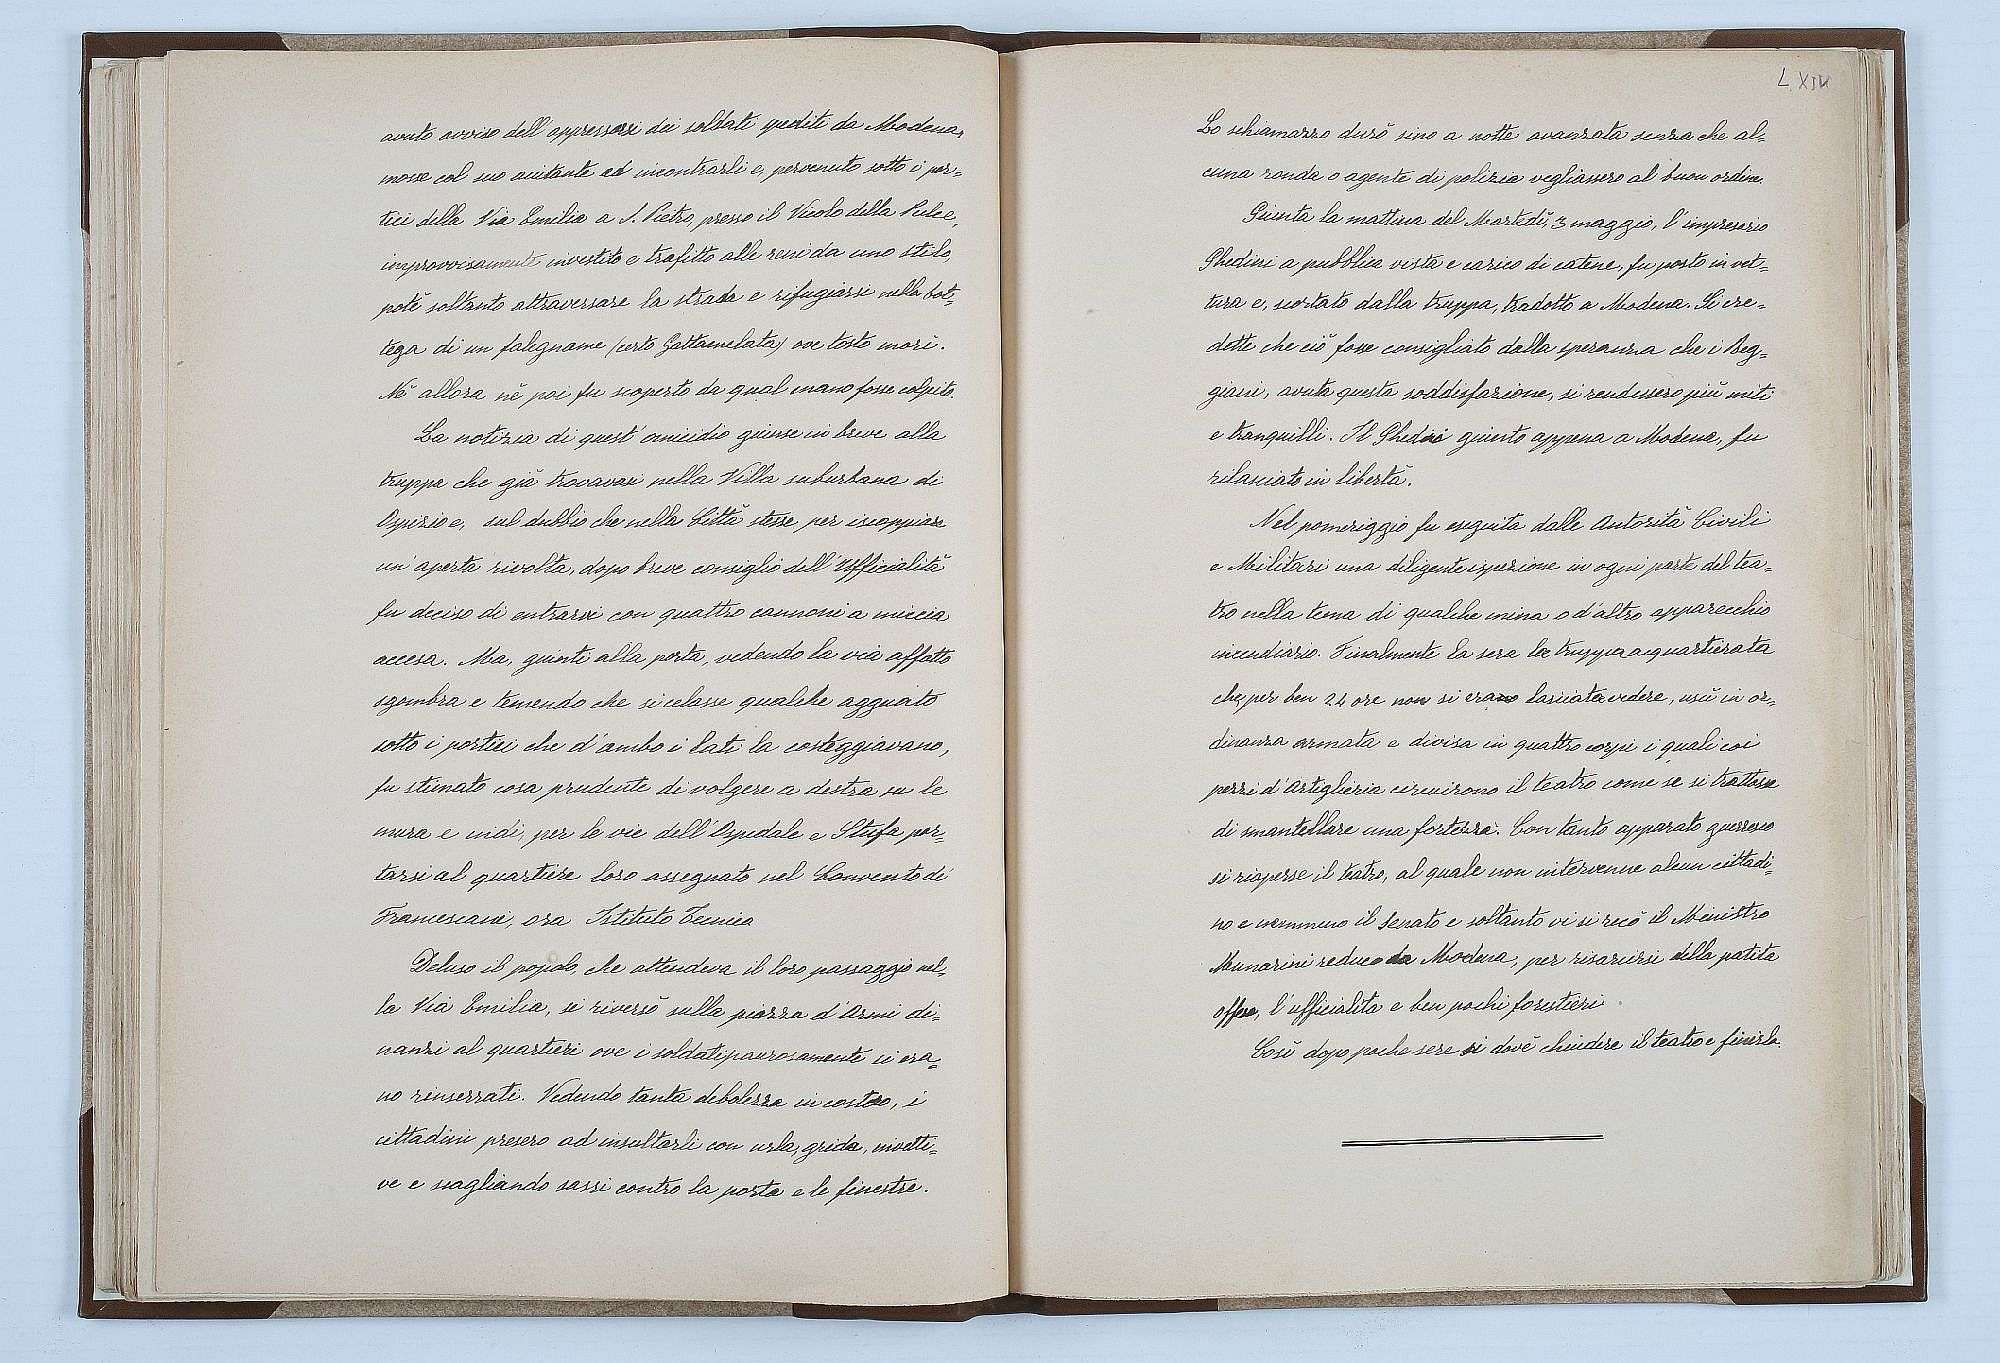 avuto avviso dell'appressarsi dei soldati spediti da Modena,
mosse col suo aiutante ad incontrarli e, pervenuto sotto i por=
tici della Via Emilia a S. Pietro, presso il Vicolo della Pulce,
improvvisamente investito e trafitto alle reni da uno stilo,
potè soltanto attraversare la strada e rifugiarsi nella bot=
tega di un falegname (certo Gattamelata) ove tosto morì.
Nè allora nè poi fu scoperto da qual mano fosse colpito.
La notizia di quest'omicidio giunse in breve alla
truppa che già trovavasi nella Villa suburbana di
Ospizio e, sul dubbio che nella Città stesse per iscoppiare
un'aperta rivolta, dopo breve consiglio dell'Ufficialità
fu deciso di entrarvi con quattro cannoni a miccia
accesa. Ma, giunti alla porta, vedendo la via affatto
sgombra e temendo che si celasse qualche agguato
sotto i portici che d'ambo i lati la costeggiavano,
fu stimato cosa prudente di volgere a destra su le
mura e indi, per le vie dell'Ospedale e Stufa por=
tarsi al quartiere loro assegnato nel Convento di
Francescani, ora Istituto Tecnico
Deluso il popolo, che attendeva il loro passaggio nel=
la Via Emilia, si riversò sulla piazza d'Armi di=
nanzi al quartieri ove i soldati paurosamente si era=
no rinserrati. Vedendo tanta debolezza in costoro, i
cittadini presero ad insultarli con urla, grida, invetti=
ve e scagliando sassi contro la porta e le finestre.
LXIV
Lo schiamazzo durò sino a notte avanzata senza che al=
cuna ronda o agente di polizia vegliassero al buon ordine.
Giunta la mattina del Martedì, 3 maggio, l'impresario
Ghedini a pubblica vista e carico di catene, fu posto in vet=
tura e, scortato dalla truppa, tradotto a Modena. Si cre=
dette che ciò fosse consigliato dalla speranza che i Reg=
giani, avuta questa soddisfazione, si rendessero più miti
e tranquilli. Il Ghedini giunto appena a Modena, fu
rilasciato in libertà.
Nel pomeriggio fu eseguita dalle Autorità Civili
e Militari una diligente ispezione in ogni parte del tea=
tro nella tema di qualche mina o d'altro apparecchio
incendiario. Finalmente la sera la truppa acquartierata
che, per ben 24 ore non si era lasciata vedere, uscì in or=
dinanza armata e divisa in quattro corpi i quali coi
pezzi d'Artiglieria circuirono il teatro come se si trattasse
di smantellare una fortezza. Con tanto apparato guerresco
si riaperse il teatro, al quale non intervenne alcun cittadi=
no e nemmeno il Senato e soltanto vi si recò il Ministro
Munarini reduce da Modena, per risarcirsi della patita
offesa, l'ufficialità e ben pochi forestieri.
Così dopo poche sere si dovè chiudere il teatro e finirla.